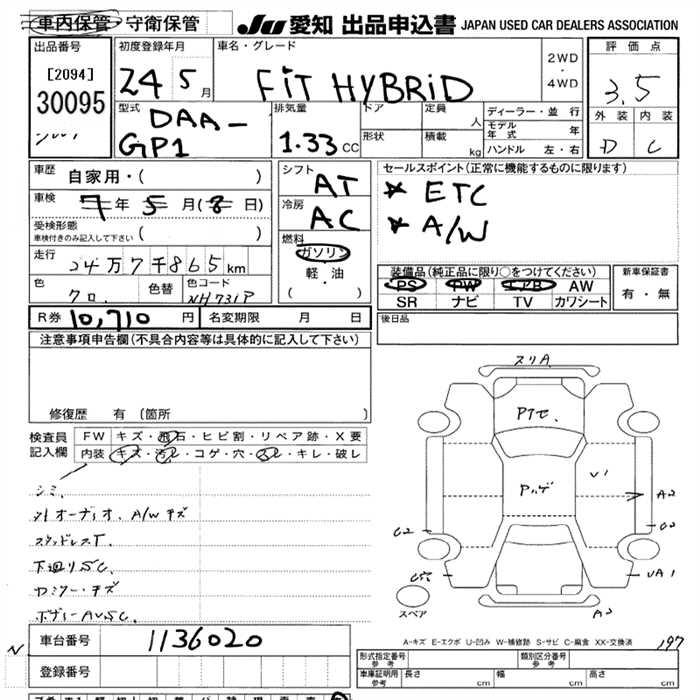 車内保管・守衛保管
JU 愛知 出品申込書 JAPAN USED CAR DEALERS ASSOCIATION
出品番号
[2094]
30095
初度登録年月
24 5 月
車名・グレード
FiT HYBRiD
2WD
・
4WD
評価点
3.5
外装 内装
D C
型式
DAA-
GP1
排気量
1.33 CC
ドア
形状
定員
人
積載
kg
ディーラー・並行
モデル
年式 年
ハンドル 左・右
車歴
自家用・( )
車検
7年 5 月(8 日)
受検形態
車検付きのみ記入して下さい ( )
走行
24万7千865km
色
クロ.
色替
色コード
NH731P
シフト
AT
冷房
AC
燃料
ガソリン
軽・油
( ・ )
セールスポイント(正常に機能するものに限ります)
* ETC
* A/W
装備品(純正品に限り○をつけてください)
PS PW エアB AW
SR ナビ TV カワシート
新車保証書
有・無
R券 10,710 円
名変期限 月 日
後日品
注意事項申告欄(不具合内容等は具体的に記入して下さい)
修復歴 有 (箇所 )
検査員
記入欄
FW キズ・飛石・ヒビ割・リペア跡・X要
内装 キズ・汚レ・コゲ・穴・スレ・キレ・破レ
シミ.
外オーディオ. A/Wキズ
スタッドレスT.
下廻りSC.
ボデーAVSC.
スリA
Pアセ.
Pハゲ
V1
A2
C2
G2
UA1
A2
スペア
A-キズ E-エクボ U-凹み W-補修跡 S-サビ C-腐食 XX-交換済
197
N
車台番号
1136020
登録番号
形式指定番号
参考
類別区分番号
参考
車庫証明用
参考
長さ cm
幅 cm
高さ cm